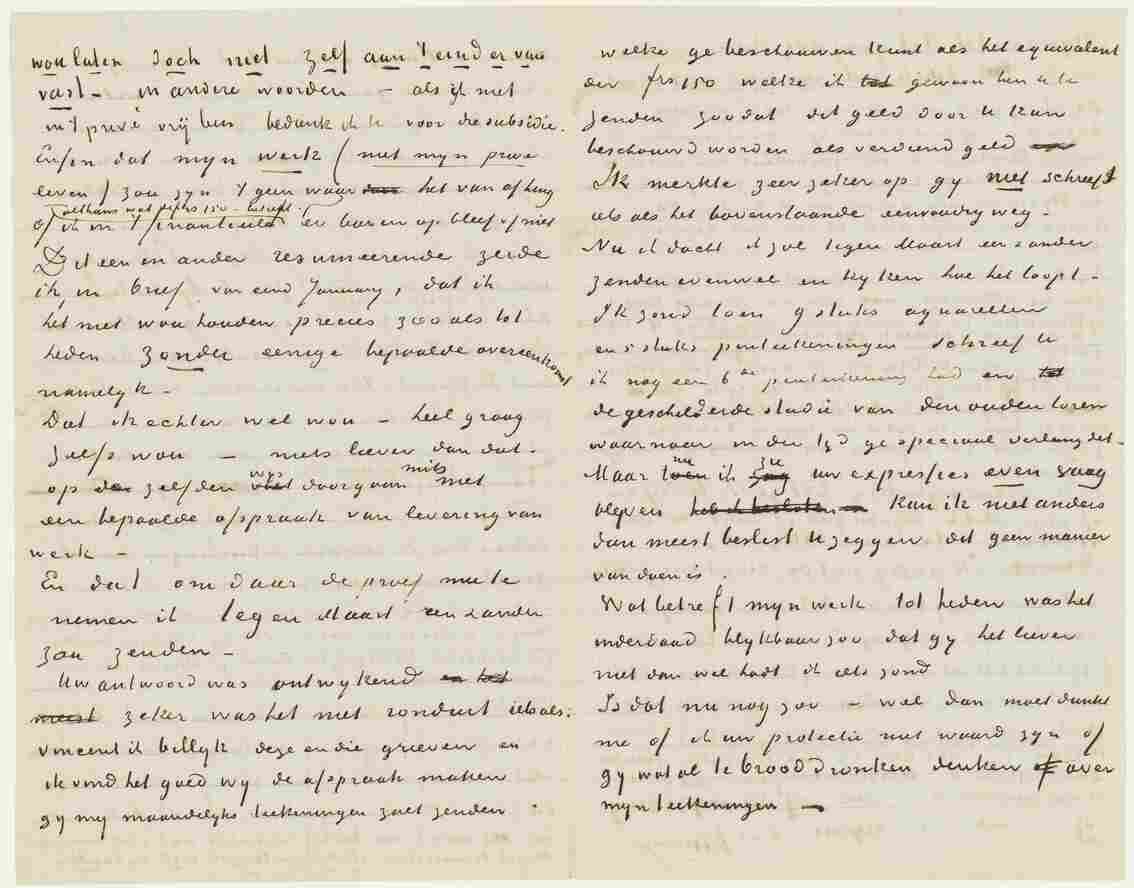 wou laten doch niet zelf aan 't eind er van
vast – in andere woorden – als ik niet
in 't privé vrij ben bedank ik U voor die subsidie.
Enfin dat myn werk (niet myn privé
leven) zou zyn 't geen waar het van af hing
althans met de frs 150
of ik in 't financieele er boven op bleef of niet
Dit een en ander resumeerende zeide
ik, in brief van eind January, dat ik
het niet wou houden precies zooals tot
heden zonder eenige bepaalde overeenkomst
namelyk –
Dat ik echter wel wou – heel graag
zelfs wou – niets liever dan dat –
op de zelfden wys doorgaan mits met
een bepaalde afspraak van levering van
werk –
En dat om daar de proef mee te
nemen ik tegen Maart een & ander
zou zenden –
Uw antwoord was ontwykend en het
meest zeker was het niet ronduit iets als:
Vincent ik billyk deze en die grieven en
ik vind het goed wy de afspraak maken
gy my maandelyks teekeningen zult zenden
welke ge beschouwen kunt als het equivalent
der frs 150 welke ik tot gewoon ben U te
zenden zoodat dit geld door U kan
beschouwd worden als verdiend geld
Ik merkte zeer zeker op gy niet schreeft
iets als het bovenstaande eenvoudig weg –
Nu ik dacht ik zal tegen Maart een & ander
zenden evenwel en kyken hoe het loopt –
Ik zond toen 9 stuks aquarellen
en 5 stuks penteekeningen schreef U
ik nog een 6de penteekening had en tot
de geschilderde studie van den ouden toren
waarnaar in der tyd ge speciaal verlangdet –
Maar nu ik zie uw expressies even vaag
blyven heb ik besloten kan ik niet anders
dan meest beslist U zeggen dit geen manier
van doen is.
Wat betreft myn werk tot heden was het
inderdaad blykbaar zoo dat gy het liever
niet dan wel hadt ik iets zond
Is dat nu nog zoo – wel dan moet dunkt
me of ik uw protectie niet waard zyn of
gy wat al te brooddronken denken over
myn teekeningen –